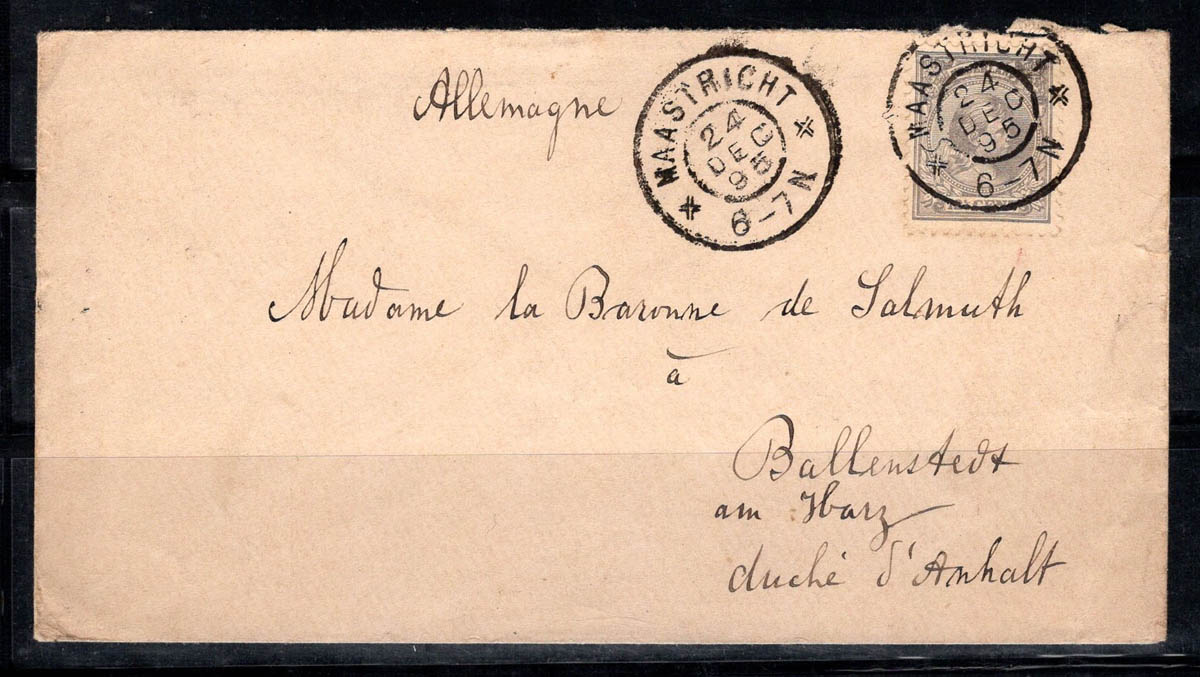 Allemagne
MAASTRICHT
24 DEC
95
6-7N
MAASTRICHT
24 DEC
95
6-7N
Madame la Baronne de Salmuth
à
Ballenstedt
am Harz
duché d'Anhalt